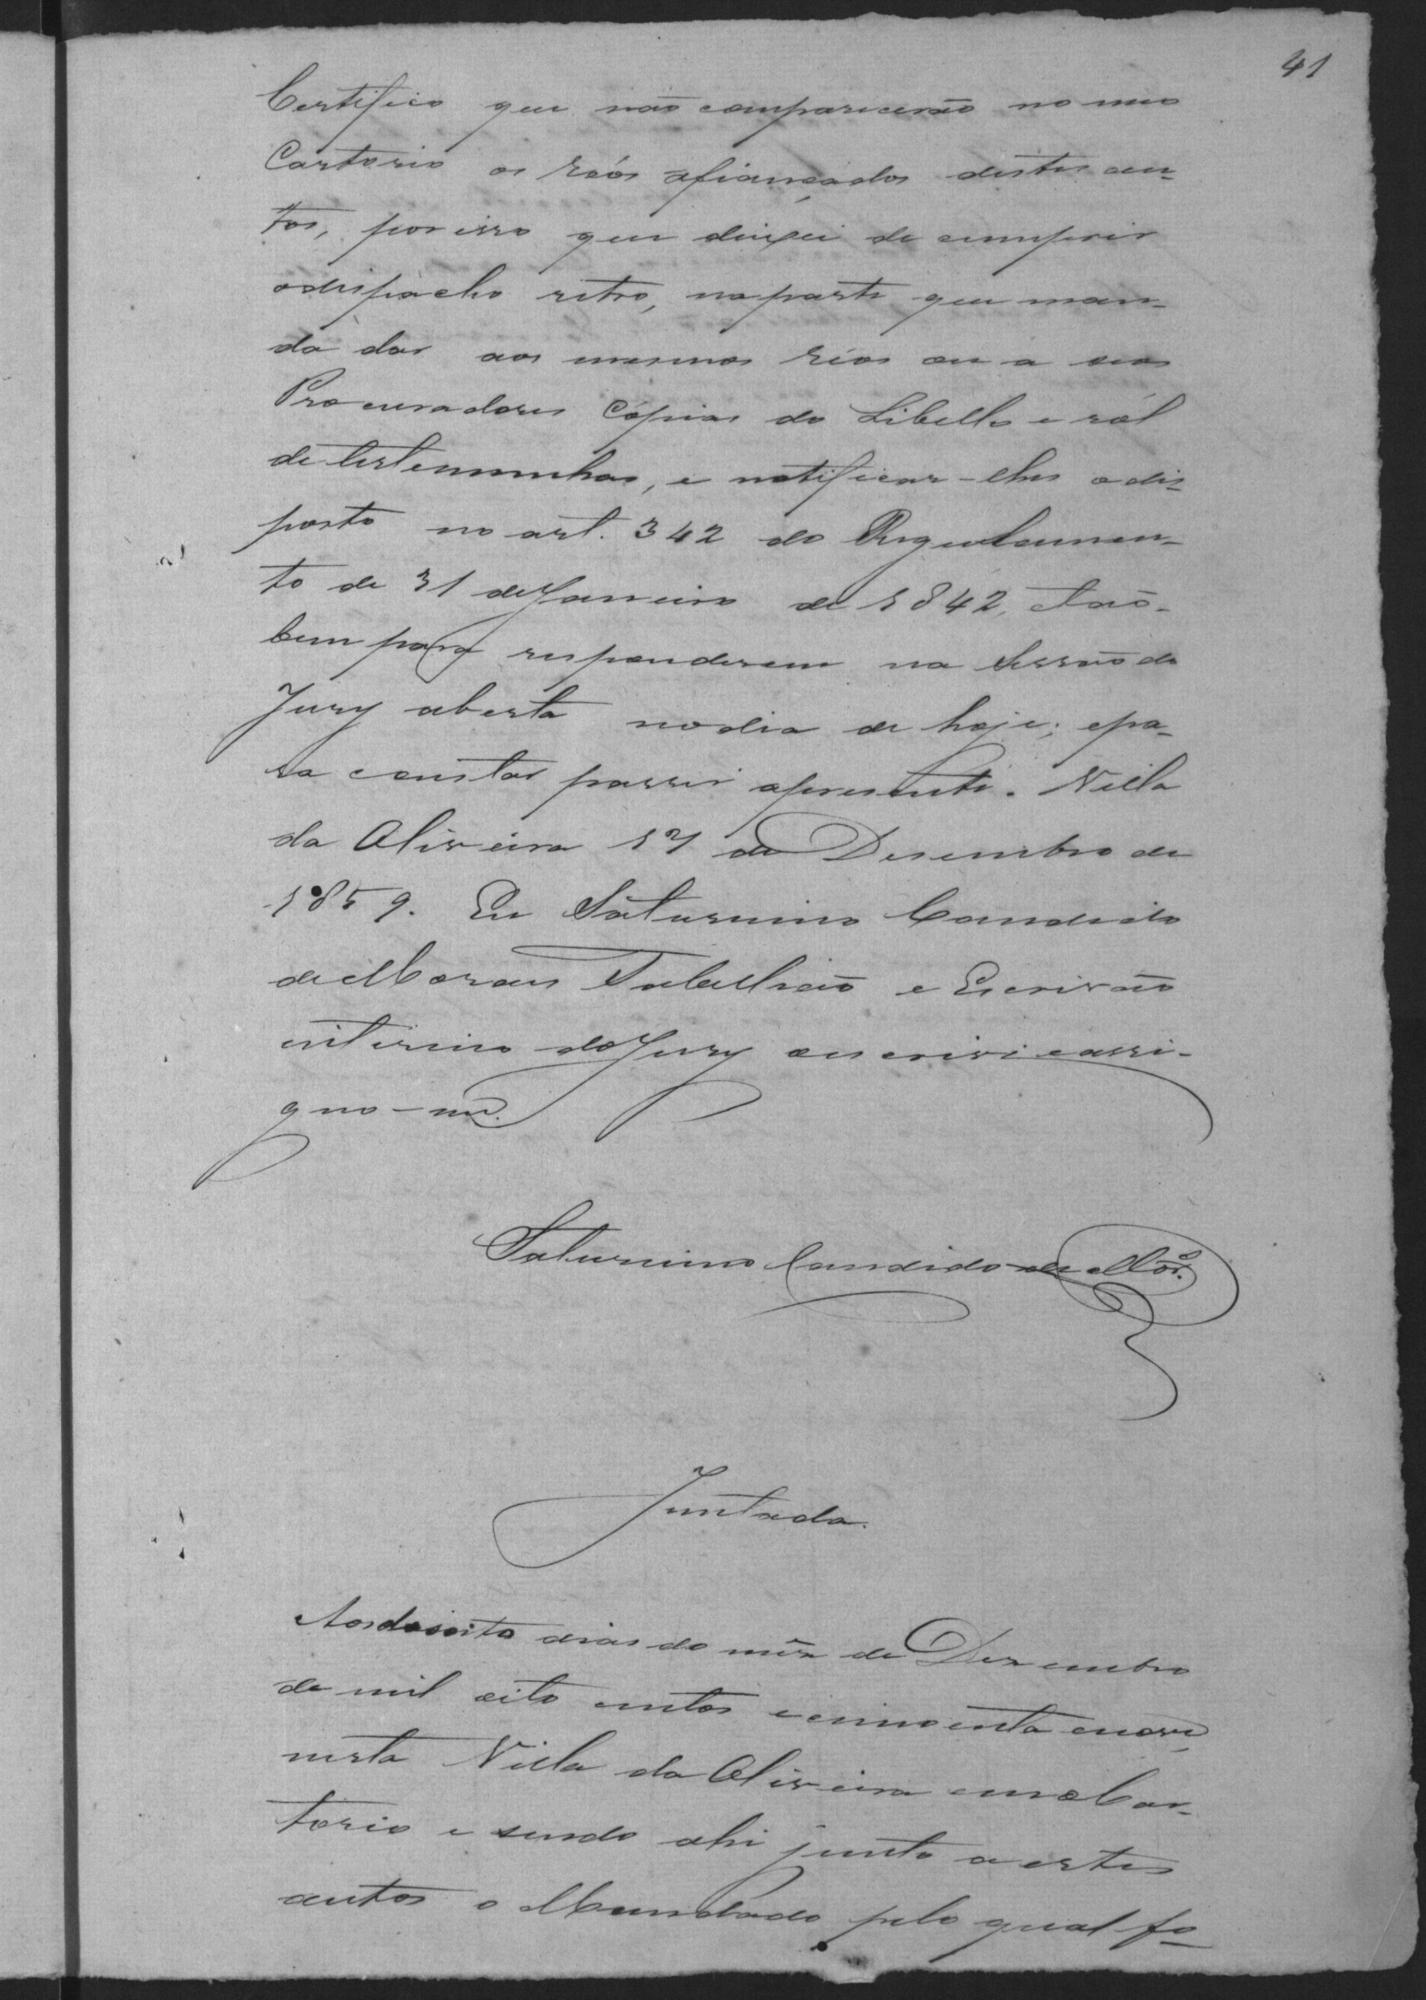 41
Certifico que não comparicerão no meo
Cartorio os reós afiançados destes au-
tos, por isso que deixei de cumprir
o dispacho retro, na parte que man-
da dar aos mesmos reos ou a seos
Procuradores Cópias do Libello e ról
de testemunhas, e notificar-lhes o dis-
posto no art. 342 do Regulamen-
to de 31 de Janeiro de 1842, e tão-
bem para responderem na Sessão do
Jury aberta no dia de hoje; e pa-
ra constar passei a presente. Villa
da Oliveira 17 de Desembro de
1859. Eu Saturnino Candido
de Moraes Tabellião e Escrivão
interino do Jury escrivi e assi-
gno-me.
Saturnino Candido de Mor.es
Juntada.
Aos desoito dias do mês de Dezembro
de mil oito centos e cincoenta e nove,
nesta Villa da Oliveira em o Car-
torio e sendo ahi junto a estes
autos o Mandado pelo qual fo-